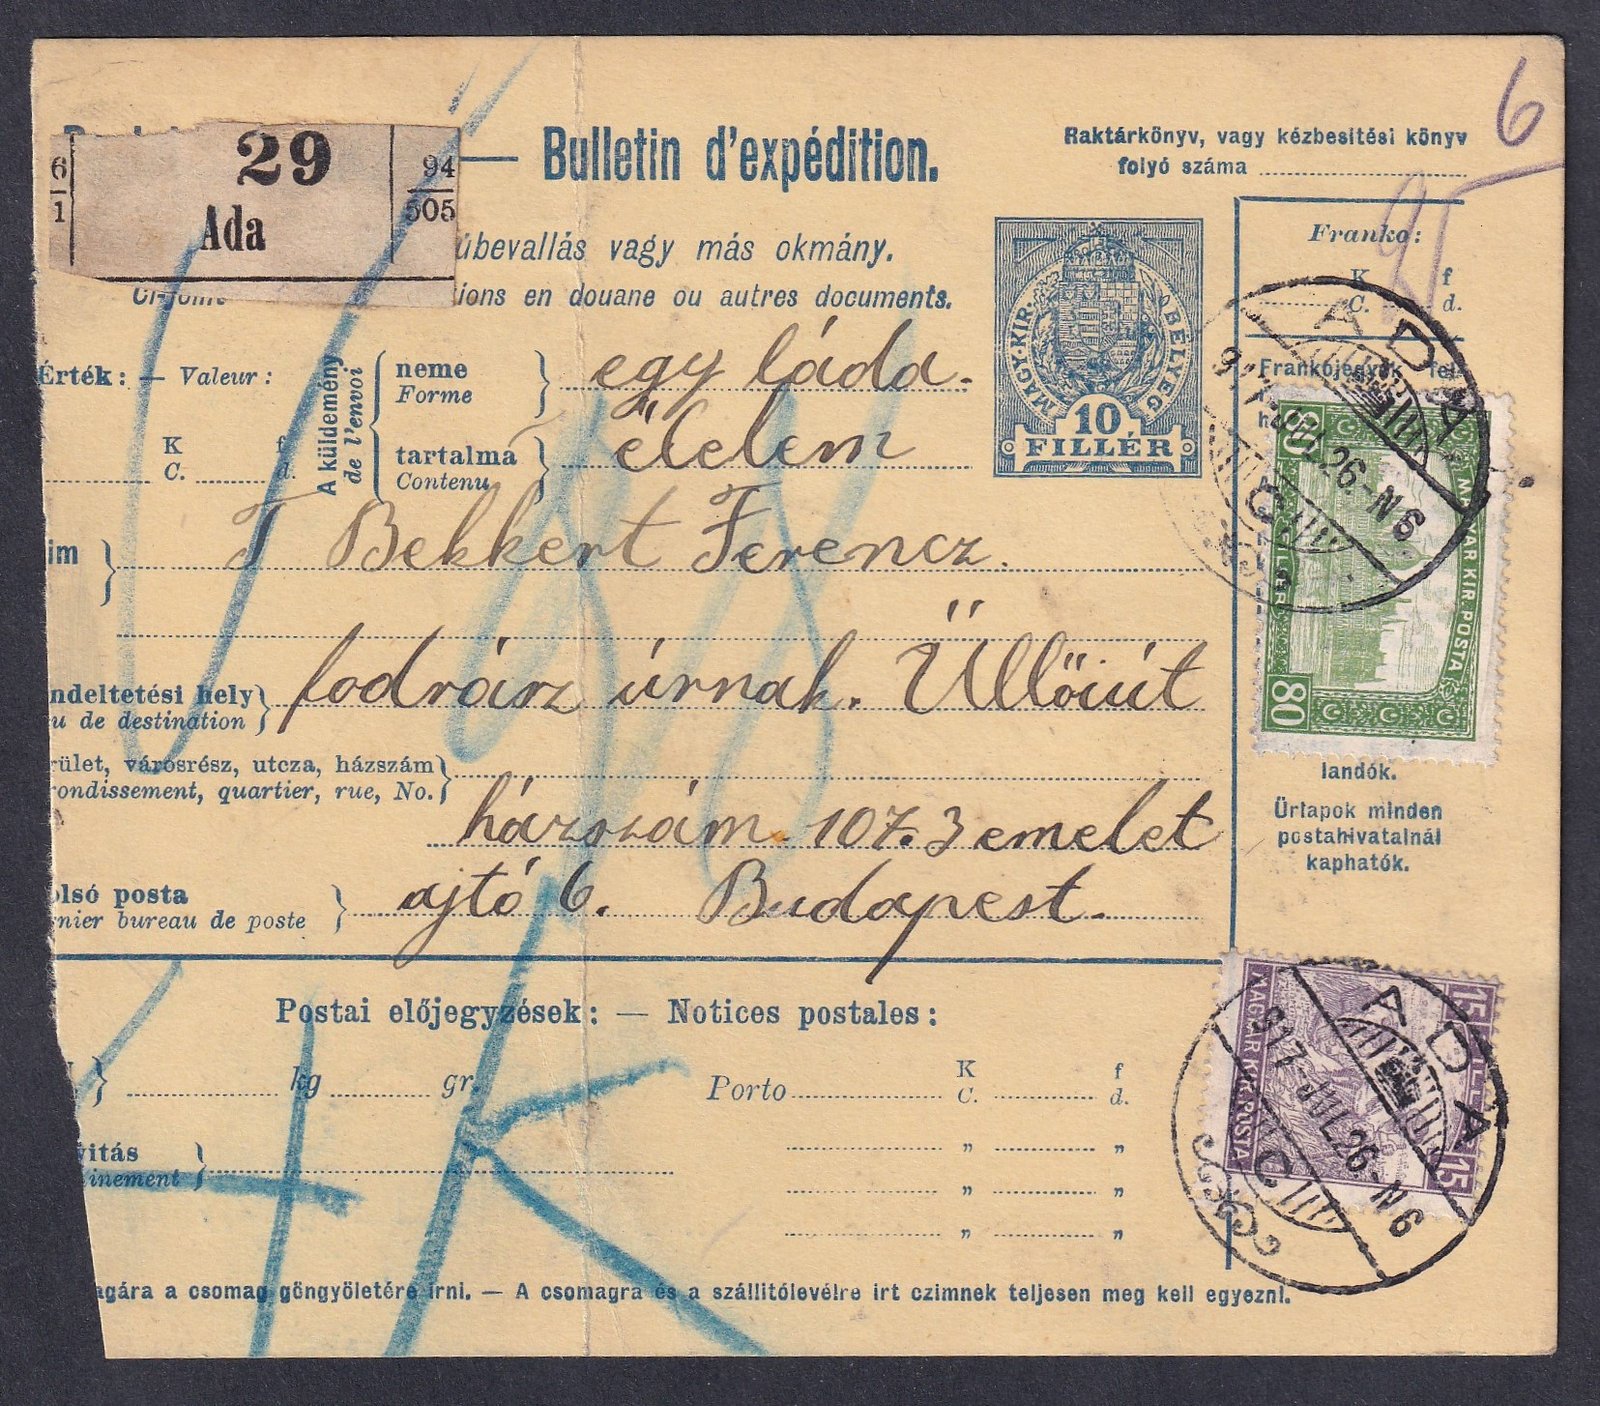 Bulletin d'expédition.
Raktárkönyv, vagy kézbesitési könyv
folyó száma
6
29
Ada
6
1
94
505
úbevallás vagy más okmány.
Ci-joint
tions en douane ou autres documents.
MAGY. KIR. BÉLYEG
10
FILLÉR
Franko:
K f
C. d.
Érték: — Valeur:
K f
C. d.
A küldemény
de l'envoi
neme
Forme
egy láda.
tartalma
Contenu
élelem
Frankójegyek fel-
80
MAGYAR KIR. POSTA
80
ADA
917 JUL 26.-N6
T Bekkert Ferencz.
ndeltetési hely
u de destination
fodrász úrnak. Üllőiút
rület, városrész, utcza, házszám
rondissement, quartier, rue, No.
házszám 107. 3 emelet
olsó posta
rnier bureau de poste
ajtó 6. Budapest.
landók.
Ürlapok minden
postahivatalnál
kaphatók.
Postai előjegyzések: — Notices postales:
kg gr.
Porto
K f
C. d.
„ „
„ „
„ „
vitás
inement
4 K
15
15
MAGYAR KIR. POSTA
ADA
917 JUL 26.-N6
agára a csomag göngyöletére irni. — A csomagra és a szállitólevélre irt czimnek teljesen meg kell egyezni.